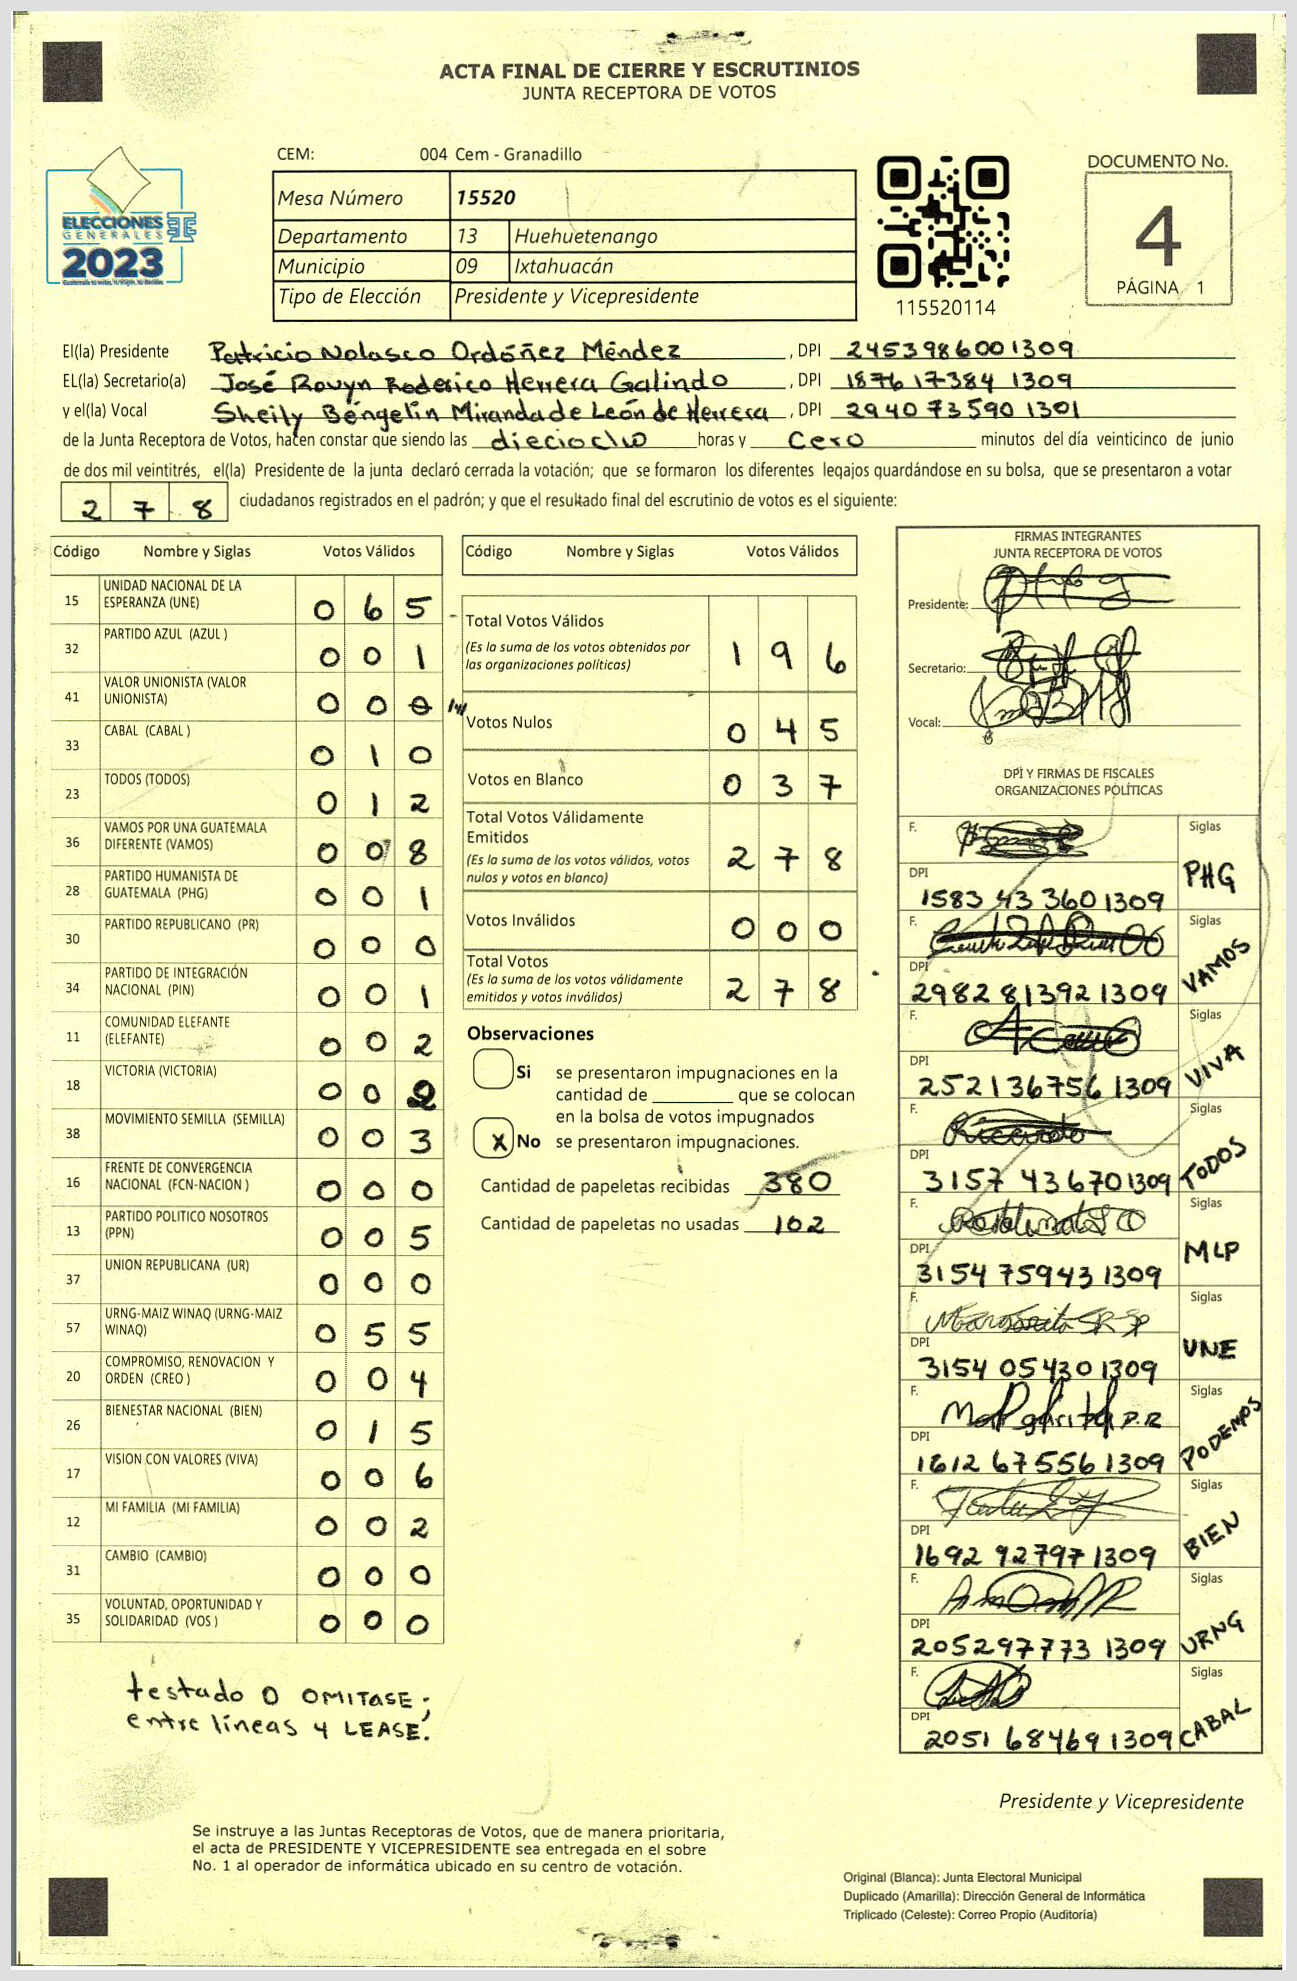 ACTA FINAL DE CIERRE Y ESCRUTINIOS
JUNTA RECEPTORA DE VOTOS
CEM: 004 Cem - Granadillo
DOCUMENTO No.
4
PÁGINA 1
ELECCIONES
GENERALES
2023
Mesa Número 15520
Departamento 13 Huehuetenango
Municipio 09 Ixtahuacán
Tipo de Elección Presidente y Vicepresidente
115520114
El(la) Presidente Patricio Nolasco Ordóñez Méndez , DPI 2453986001309
EL(la) Secretario(a) José Rovyn Roderico Herrera Galindo , DPI 1876173841309
y el(la) Vocal Sheily Béngelin Miranda de León de Herrera , DPI 2940735901301
de la Junta Receptora de Votos, hacen constar que siendo las dieciocho horas y cero minutos del día veinticinco de junio
de dos mil veintitrés, el(la) Presidente de la junta declaró cerrada la votación; que se formaron los diferentes legajos guardándose en su bolsa, que se presentaron a votar
2 7 8 ciudadanos registrados en el padrón; y que el resultado final del escrutinio de votos es el siguiente:
Código Nombre y Siglas Votos Válidos
15 UNIDAD NACIONAL DE LA ESPERANZA (UNE) 0 6 5
32 PARTIDO AZUL (AZUL ) 0 0 1
41 VALOR UNIONISTA (VALOR UNIONISTA) 0 0 0
33 CABAL (CABAL ) 0 1 0
23 TODOS (TODOS) 0 1 2
36 VAMOS POR UNA GUATEMALA DIFERENTE (VAMOS) 0 0 8
28 PARTIDO HUMANISTA DE GUATEMALA (PHG) 0 0 1
30 PARTIDO REPUBLICANO (PR) 0 0 0
34 PARTIDO DE INTEGRACIÓN NACIONAL (PIN) 0 0 1
11 COMUNIDAD ELEFANTE (ELEFANTE) 0 0 2
18 VICTORIA (VICTORIA) 0 0 2
38 MOVIMIENTO SEMILLA (SEMILLA) 0 0 3
16 FRENTE DE CONVERGENCIA NACIONAL (FCN-NACION ) 0 0 0
13 PARTIDO POLITICO NOSOTROS (PPN) 0 0 5
37 UNION REPUBLICANA (UR) 0 0 0
57 URNG-MAIZ WINAQ (URNG-MAIZ WINAQ) 0 5 5
20 COMPROMISO, RENOVACION Y ORDEN (CREO ) 0 0 4
26 BIENESTAR NACIONAL (BIEN) 0 1 5
17 VISION CON VALORES (VIVA) 0 0 6
12 MI FAMILIA (MI FAMILIA) 0 0 2
31 CAMBIO (CAMBIO) 0 0 0
35 VOLUNTAD, OPORTUNIDAD Y SOLIDARIDAD (VOS ) 0 0 0
testado 0 OMITASE;
entre líneas 4 LEASE.
Código Nombre y Siglas Votos Válidos
Total Votos Válidos 1 9 6
(Es la suma de los votos obtenidos por
las organizaciones políticas)
Votos Nulos 0 4 5
Votos en Blanco 0 3 7
Total Votos Válidamente
Emitidos 2 7 8
(Es la suma de los votos válidos, votos
nulos y votos en blanco)
Votos Inválidos 0 0 0
Total Votos 2 7 8
(Es la suma de los votos válidamente
emitidos y votos inválidos)
Observaciones
Si se presentaron impugnaciones en la
cantidad de ________ que se colocan
en la bolsa de votos impugnados
X No se presentaron impugnaciones.
Cantidad de papeletas recibidas 380
Cantidad de papeletas no usadas 102
FIRMAS INTEGRANTES
JUNTA RECEPTORA DE VOTOS
Presidente:
Secretario:
Vocal:
DPI Y FIRMAS DE FISCALES
ORGANIZACIONES POLÍTICAS
F. Siglas
DPI PHG
1583 43 360 1309
F. Siglas
DPI VAMOS
2982 81392 1309
F. Siglas
DPI VIVA
2521367561309
F. Siglas
DPI TODOS
3157 43670 1309
F. Siglas
DPI MLP
3154 75943 1309
F. Siglas
DPI UNE
3154 05430 1309
F. Siglas
DPI PODEMOS
1612 67556 1309
F. Siglas
DPI BIEN
1692 92797 1309
F. Siglas
DPI URNG
205297773 1309
F. Siglas
DPI CABAL
2051 68469 1309
Presidente y Vicepresidente
Se instruye a las Juntas Receptoras de Votos, que de manera prioritaria,
el acta de PRESIDENTE Y VICEPRESIDENTE sea entregada en el sobre
No. 1 al operador de informática ubicado en su centro de votación.
Original (Blanca): Junta Electoral Municipal
Duplicado (Amarilla): Dirección General de Informática
Triplicado (Celeste): Correo Propio (Auditoría)